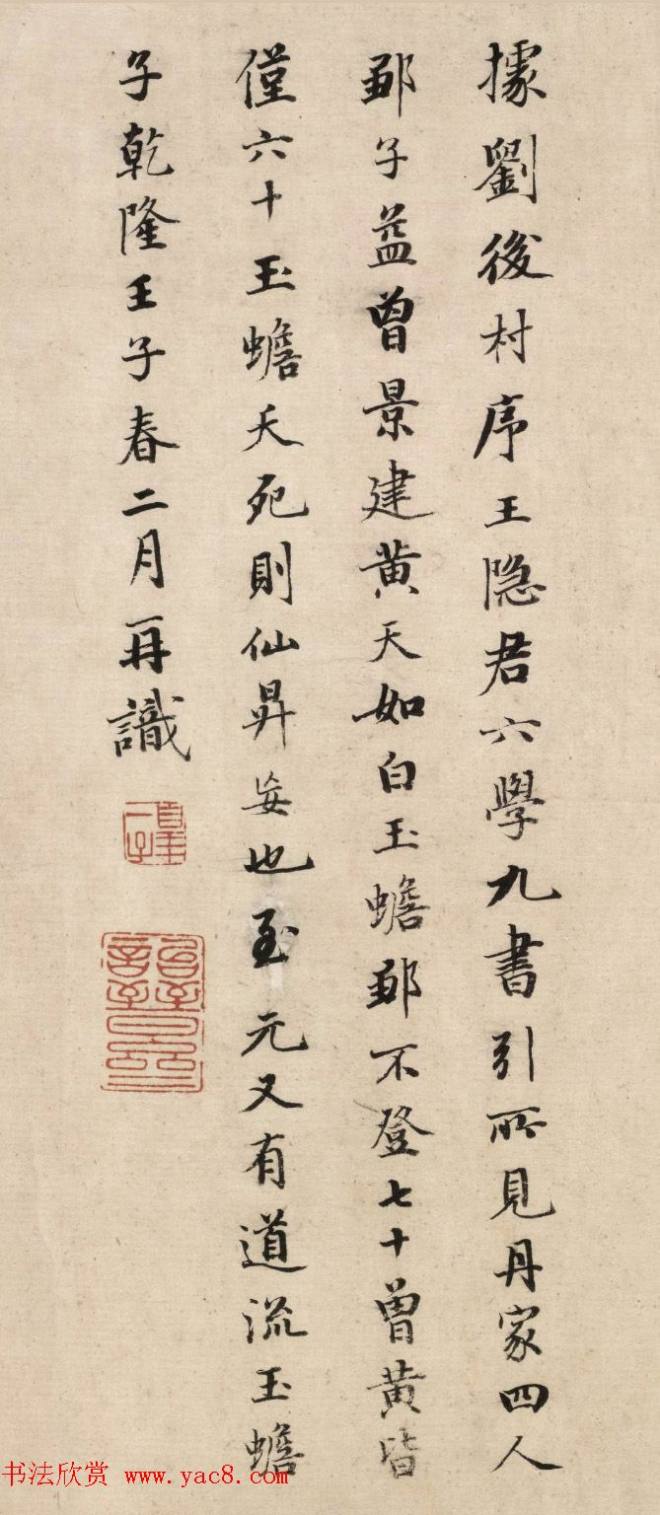 據劉後村序王隐君六學九書引所見丹家四人
鄒子益曾景建黄天如白玉蟾鄒不登七十曾黄皆
僅六十玉蟾夭死則仙昇妄也至元又有道流玉蟾
子乾隆壬子春二月再識
书法欣赏 www.yac8.com